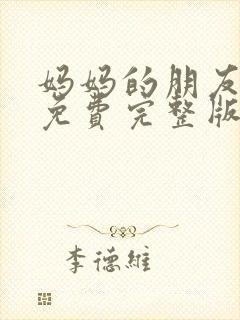 妈妈的朋友
免費完整版
李德維